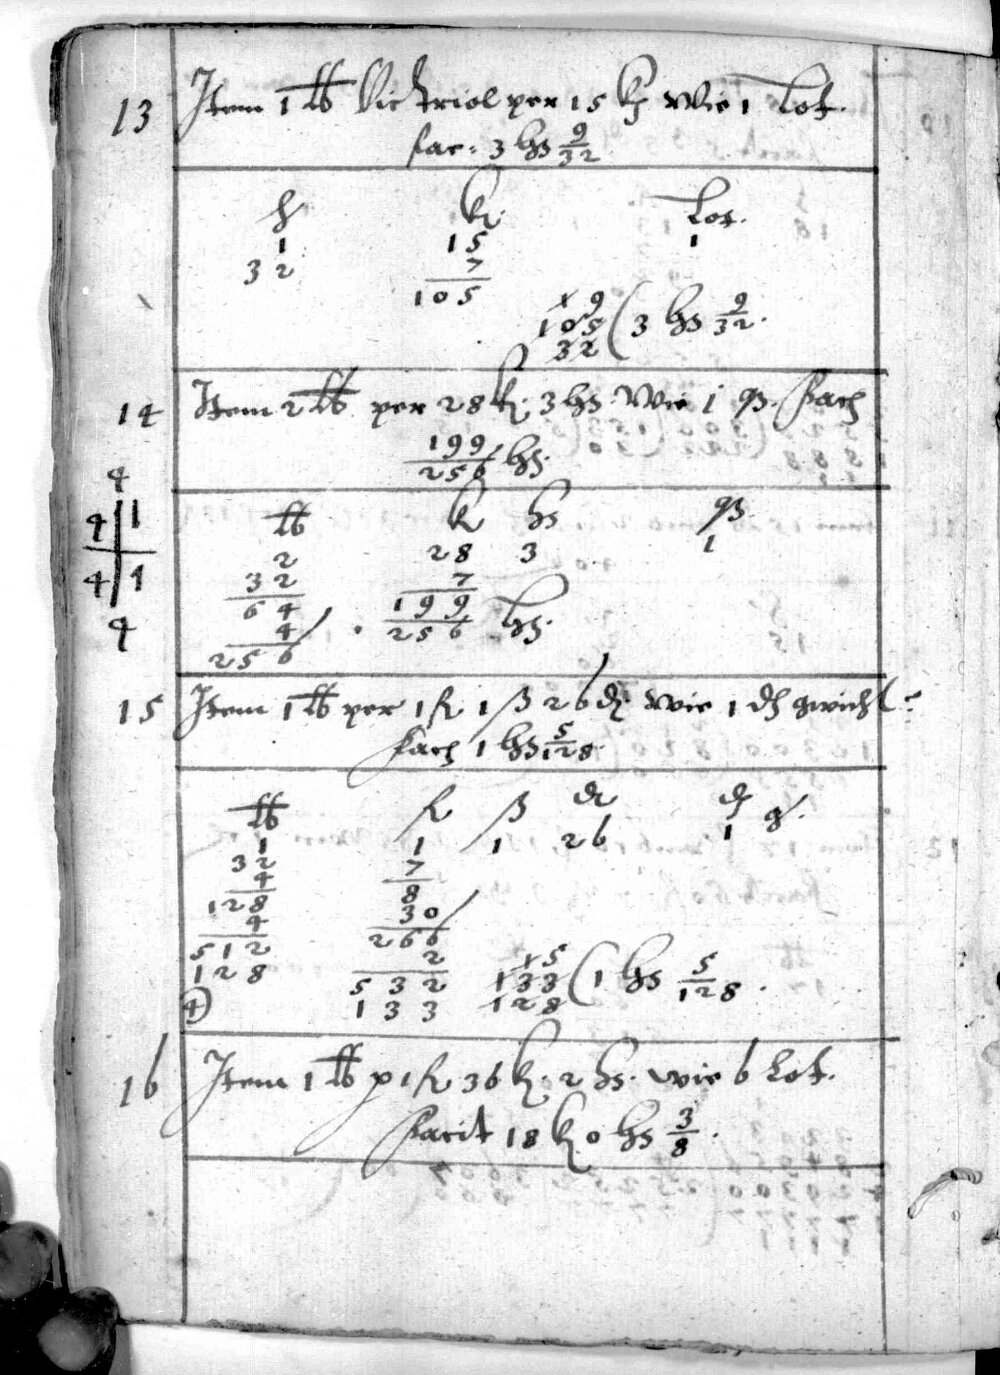 13 Item 1 lb Victriol per 15 kr Wie 1 Lot.
fac: 3 hs 9/32
lb kr Lot.
1 15 1
32 7
105
x 9
105 ( 3 hs 9/32.
32
14 Item 2 lb per 28 kr 3 hs Wie 1 qß. Fach
199/256 hs.
4
4 1
4 1
4
lb kr hs qß
2 28 3 1
32 7
64 199
4 256 hs.
256
15 Item 1 lb per 1 fl 1 ß 26 dh Wie 1 dh gwicht
Fach 1 hs 5/128.
lb fl ß dh dh g.
1 1 1 26 1
32 7
4 8
128 30
4 266
512 2 x5
128 532 133 ( 1 hs 5/128.
4 133 128
16 Item 1 lb p 1 fl 36 kr. 2 hs. wie 6 Lot.
Facit 18 kr 0 hs 3/8.